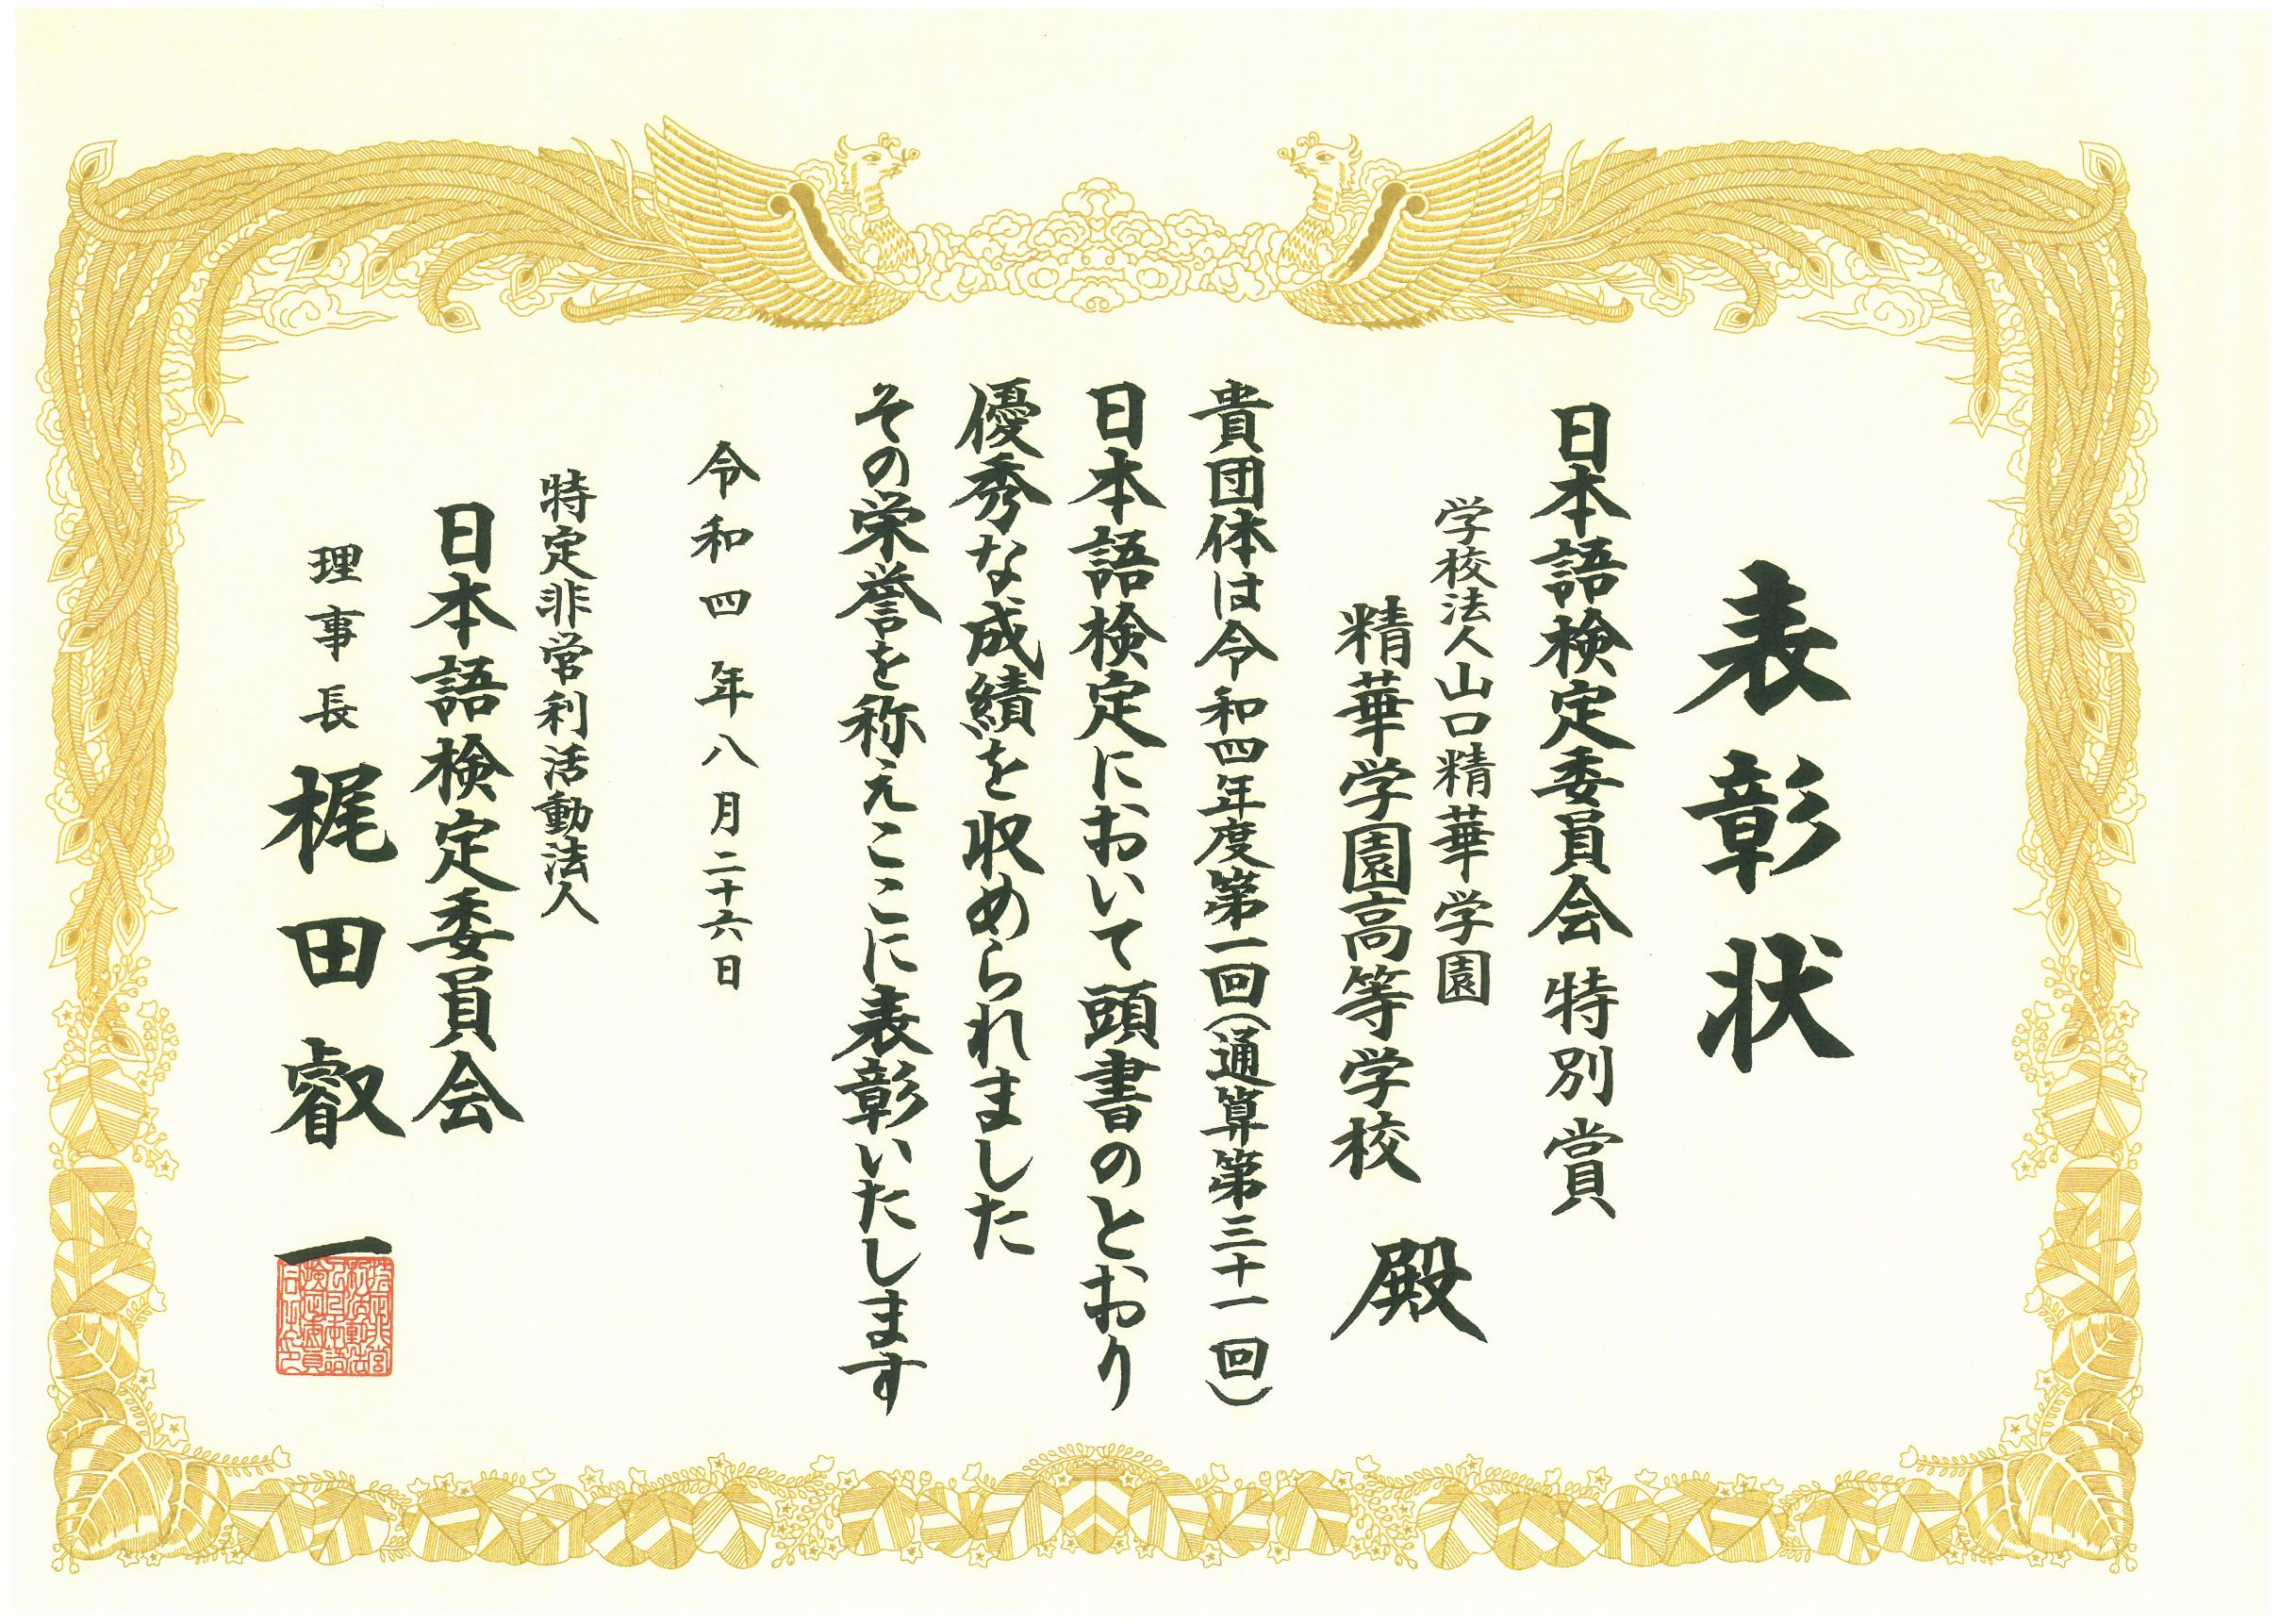 表彰状
日本語検定委員会 特別賞
学校法人山口精華学園
精華学園高等学校 殿
貴団体は令和四年度第一回(通算第三十一回)
日本語検定において頭書のとおり
優秀な成績を収められました
その栄誉を称えここに表彰いたします
令和四年八月二十六日
特定非営利活動法人
日本語検定委員会
理事長 梶田叡一